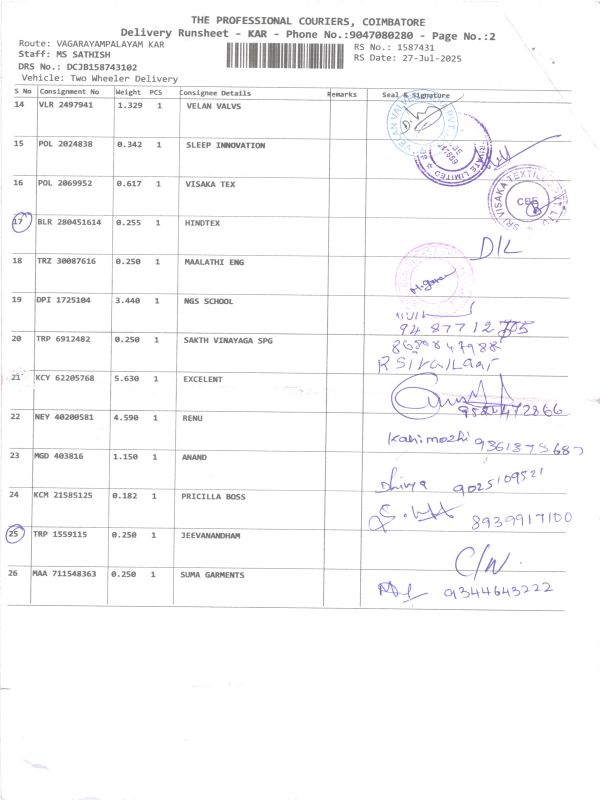 THE PROFESSIONAL COURIERS, COIMBATORE
Delivery Runsheet - KAR - Phone No.:9047080280 - Page No.:2
Route: VAGARAYAMPALAYAM KAR
RS No.: 1587431
Staff: MS SATHISH
RS Date: 27-Jul-2025
DRS No.: DCJB158743102
Vehicle: Two Wheeler Delivery
S No Consignment No Weight PCS Consignee Details Remarks Seal & Signature
14 VLR 2497941 1.329 1 VELAN VALVS
15 POL 2024838 0.342 1 SLEEP INNOVATION
16 POL 2069952 0.617 1 VISAKA TEX
SRI VISAKA TEXTILE
CBE
17 BLR 280451614 0.255 1 HINDTEX
D/L
18 TRZ 30087616 0.250 1 MAALATHI ENG
19 DPI 1725104 3.440 1 NGS SCHOOL
94 87712 705
20 TRP 6912482 0.250 1 SAKTH VINAYAGA SPG
21 KCY 62205768 5.630 1 EXCELENT
22 NEY 40200581 4.590 1 RENU
23 MGD 403816 1.150 1 ANAND
Dhivya 9025109521
24 KCM 21585125 0.182 1 PRICILLA BOSS
8939917100
25 TRP 1559115 0.250 1 JEEVANANDHAM
C/N.
26 MAA 711548363 0.250 1 SUMA GARMENTS
9344643222